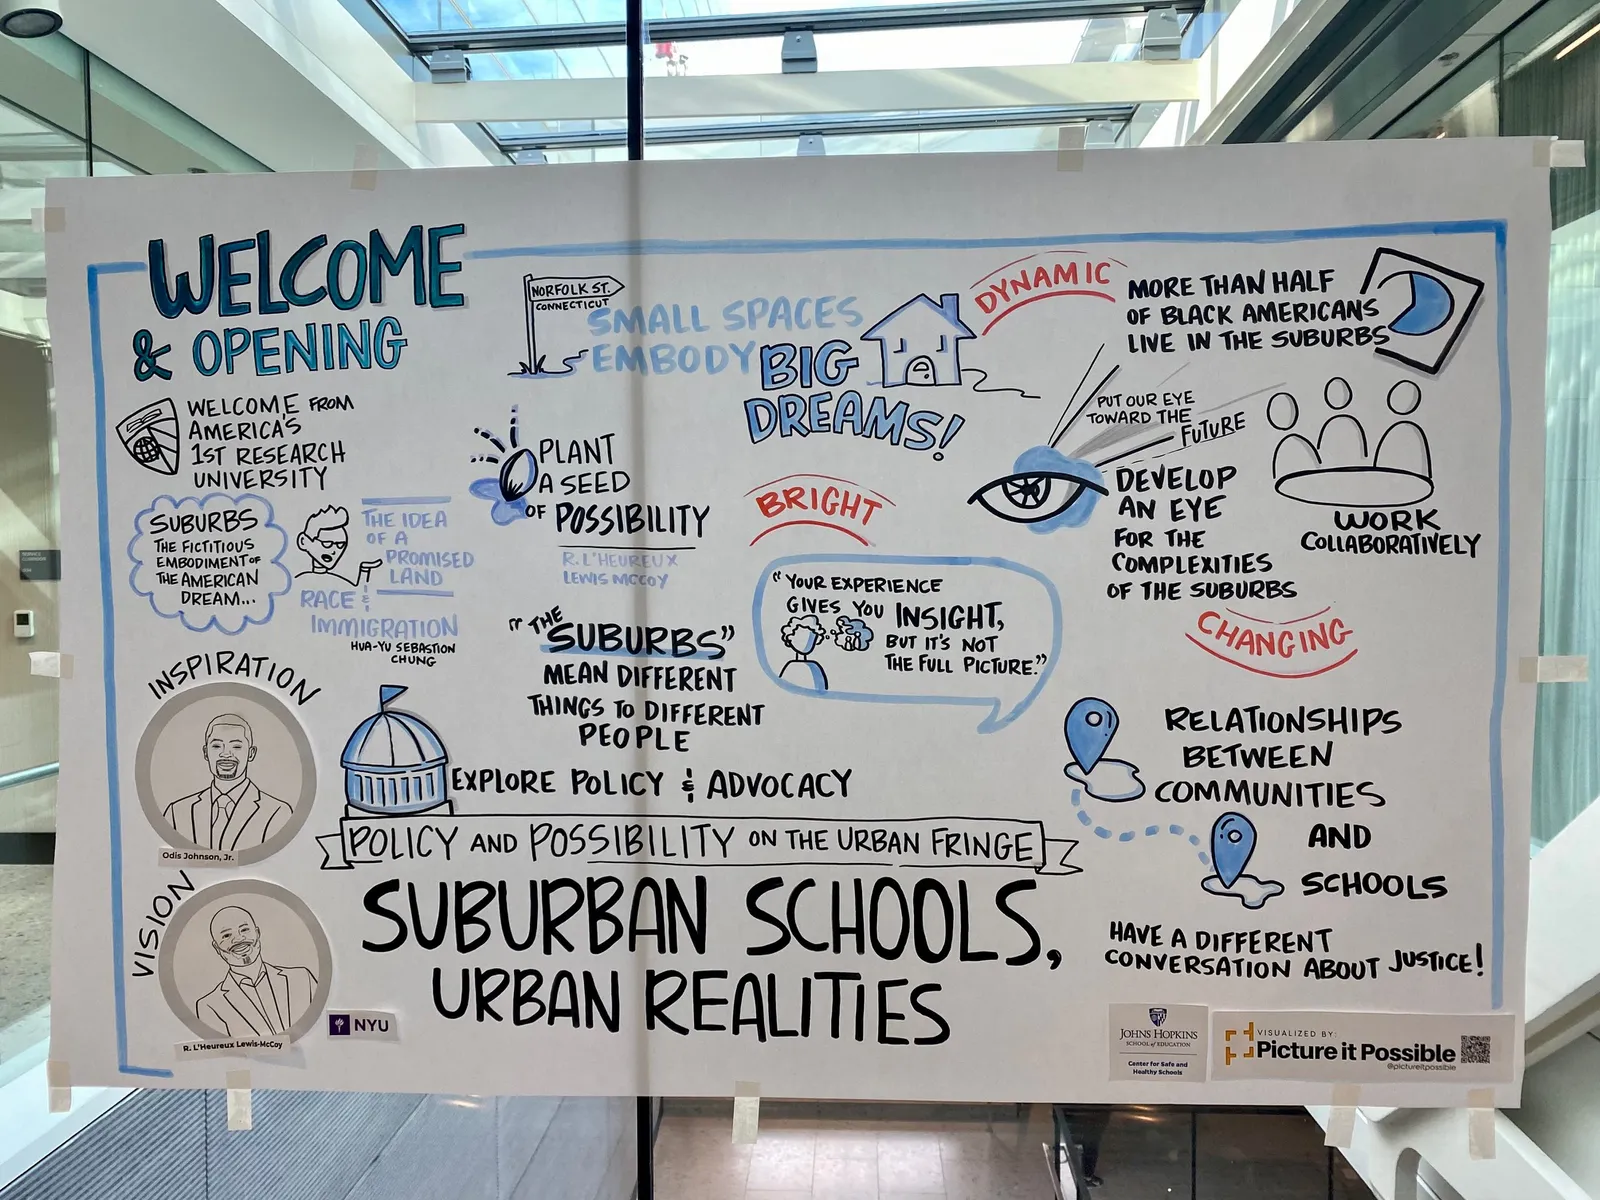 WELCOME
& OPENING
WELCOME FROM
AMERICA'S
1ST RESEARCH
UNIVERSITY
SUBURBS
THE FICTITIOUS
EMBODIMENT OF
THE AMERICAN
DREAM...
THE IDEA
OF A
PROMISED
LAND
RACE &
IMMIGRATION
HUA-YU SEBASTION
CHUNG
INSPIRATION
Odis Johnson, Jr.
VISION
R. L'Heureux Lewis-McCoy
NYU
NORFOLK ST.
CONNECTICUT
SMALL SPACES
EMBODY BIG
DREAMS!
PLANT
A SEED
OF POSSIBILITY
R. L'HEUREUX
LEWIS MCCOY
"THE
SUBURBS"
MEAN DIFFERENT
THINGS TO DIFFERENT
PEOPLE
EXPLORE POLICY & ADVOCACY
BRIGHT
"YOUR EXPERIENCE
GIVES YOU INSIGHT,
BUT IT'S NOT
THE FULL PICTURE."
DYNAMIC
MORE THAN HALF
OF BLACK AMERICANS
LIVE IN THE SUBURBS
PUT OUR EYE
TOWARD THE
FUTURE
DEVELOP
AN EYE
FOR THE
COMPLEXITIES
OF THE SUBURBS
WORK
COLLABORATIVELY
CHANGING
RELATIONSHIPS
BETWEEN
COMMUNITIES
AND
SCHOOLS
HAVE A DIFFERENT
CONVERSATION ABOUT JUSTICE!
POLICY AND POSSIBILITY ON THE URBAN FRINGE
SUBURBAN SCHOOLS,
URBAN REALITIES
JOHNS HOPKINS
SCHOOL of EDUCATION
Center for Safe and
Healthy Schools
VISUALIZED BY:
Picture it Possible
@pictureitpossible